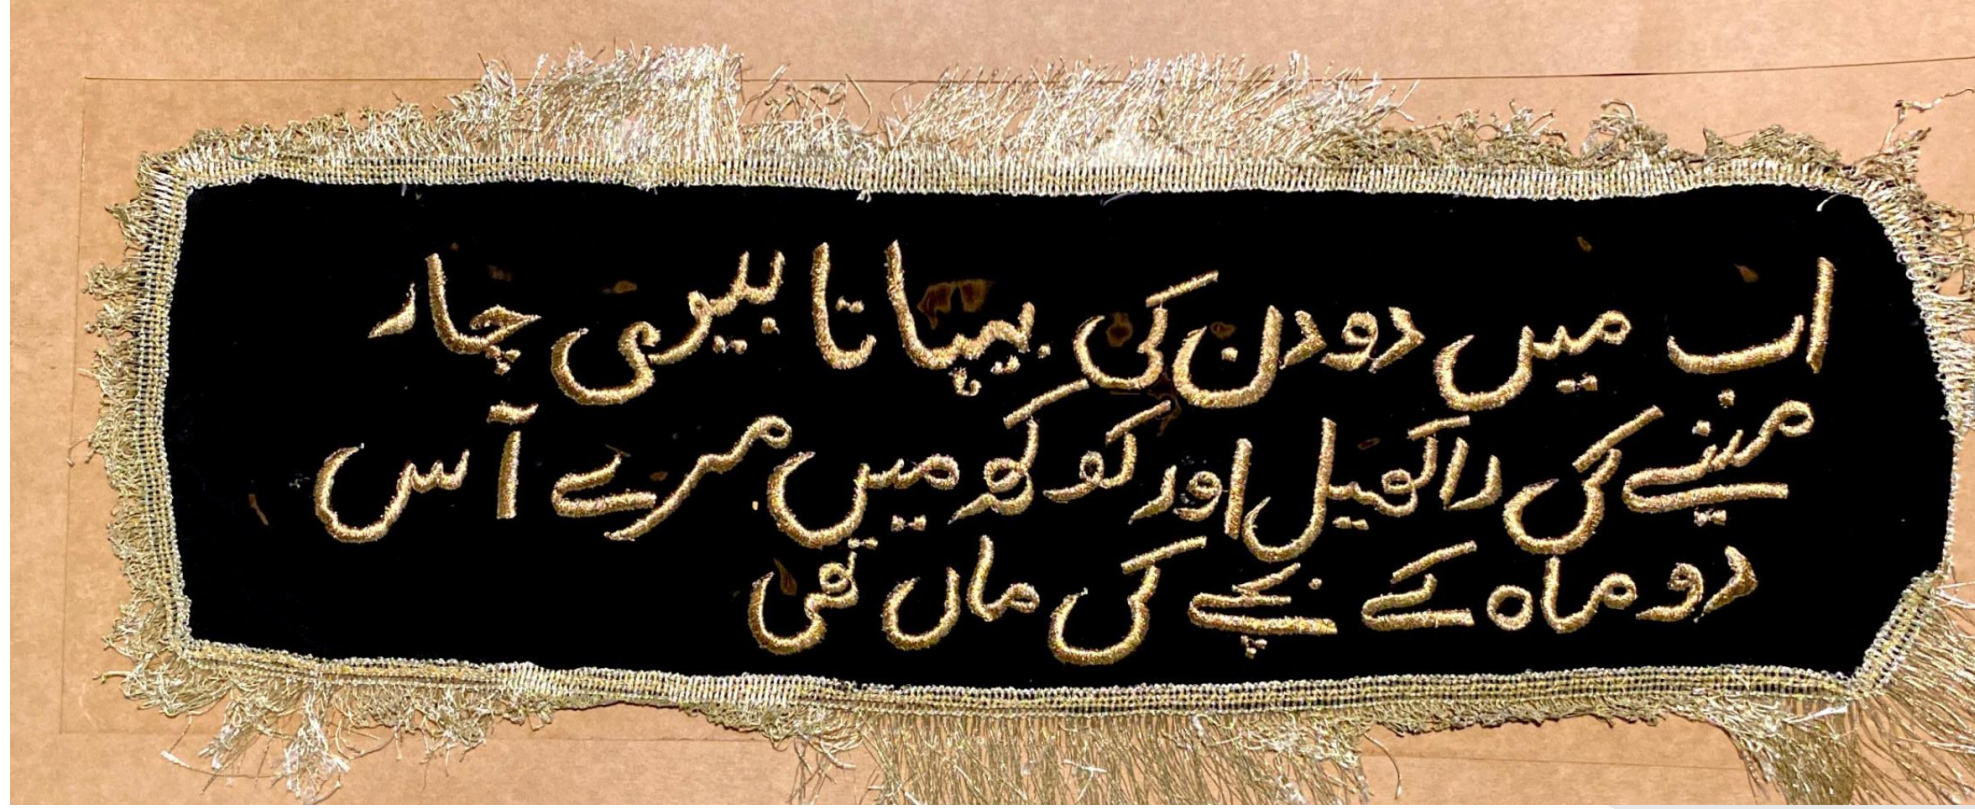 اب میں دو دن کی بیہاتا بیوی چار
مہنے کی داکھیل اور کوکھ میں مرے آس
دو ماہ کے بچے کی ماں تھی